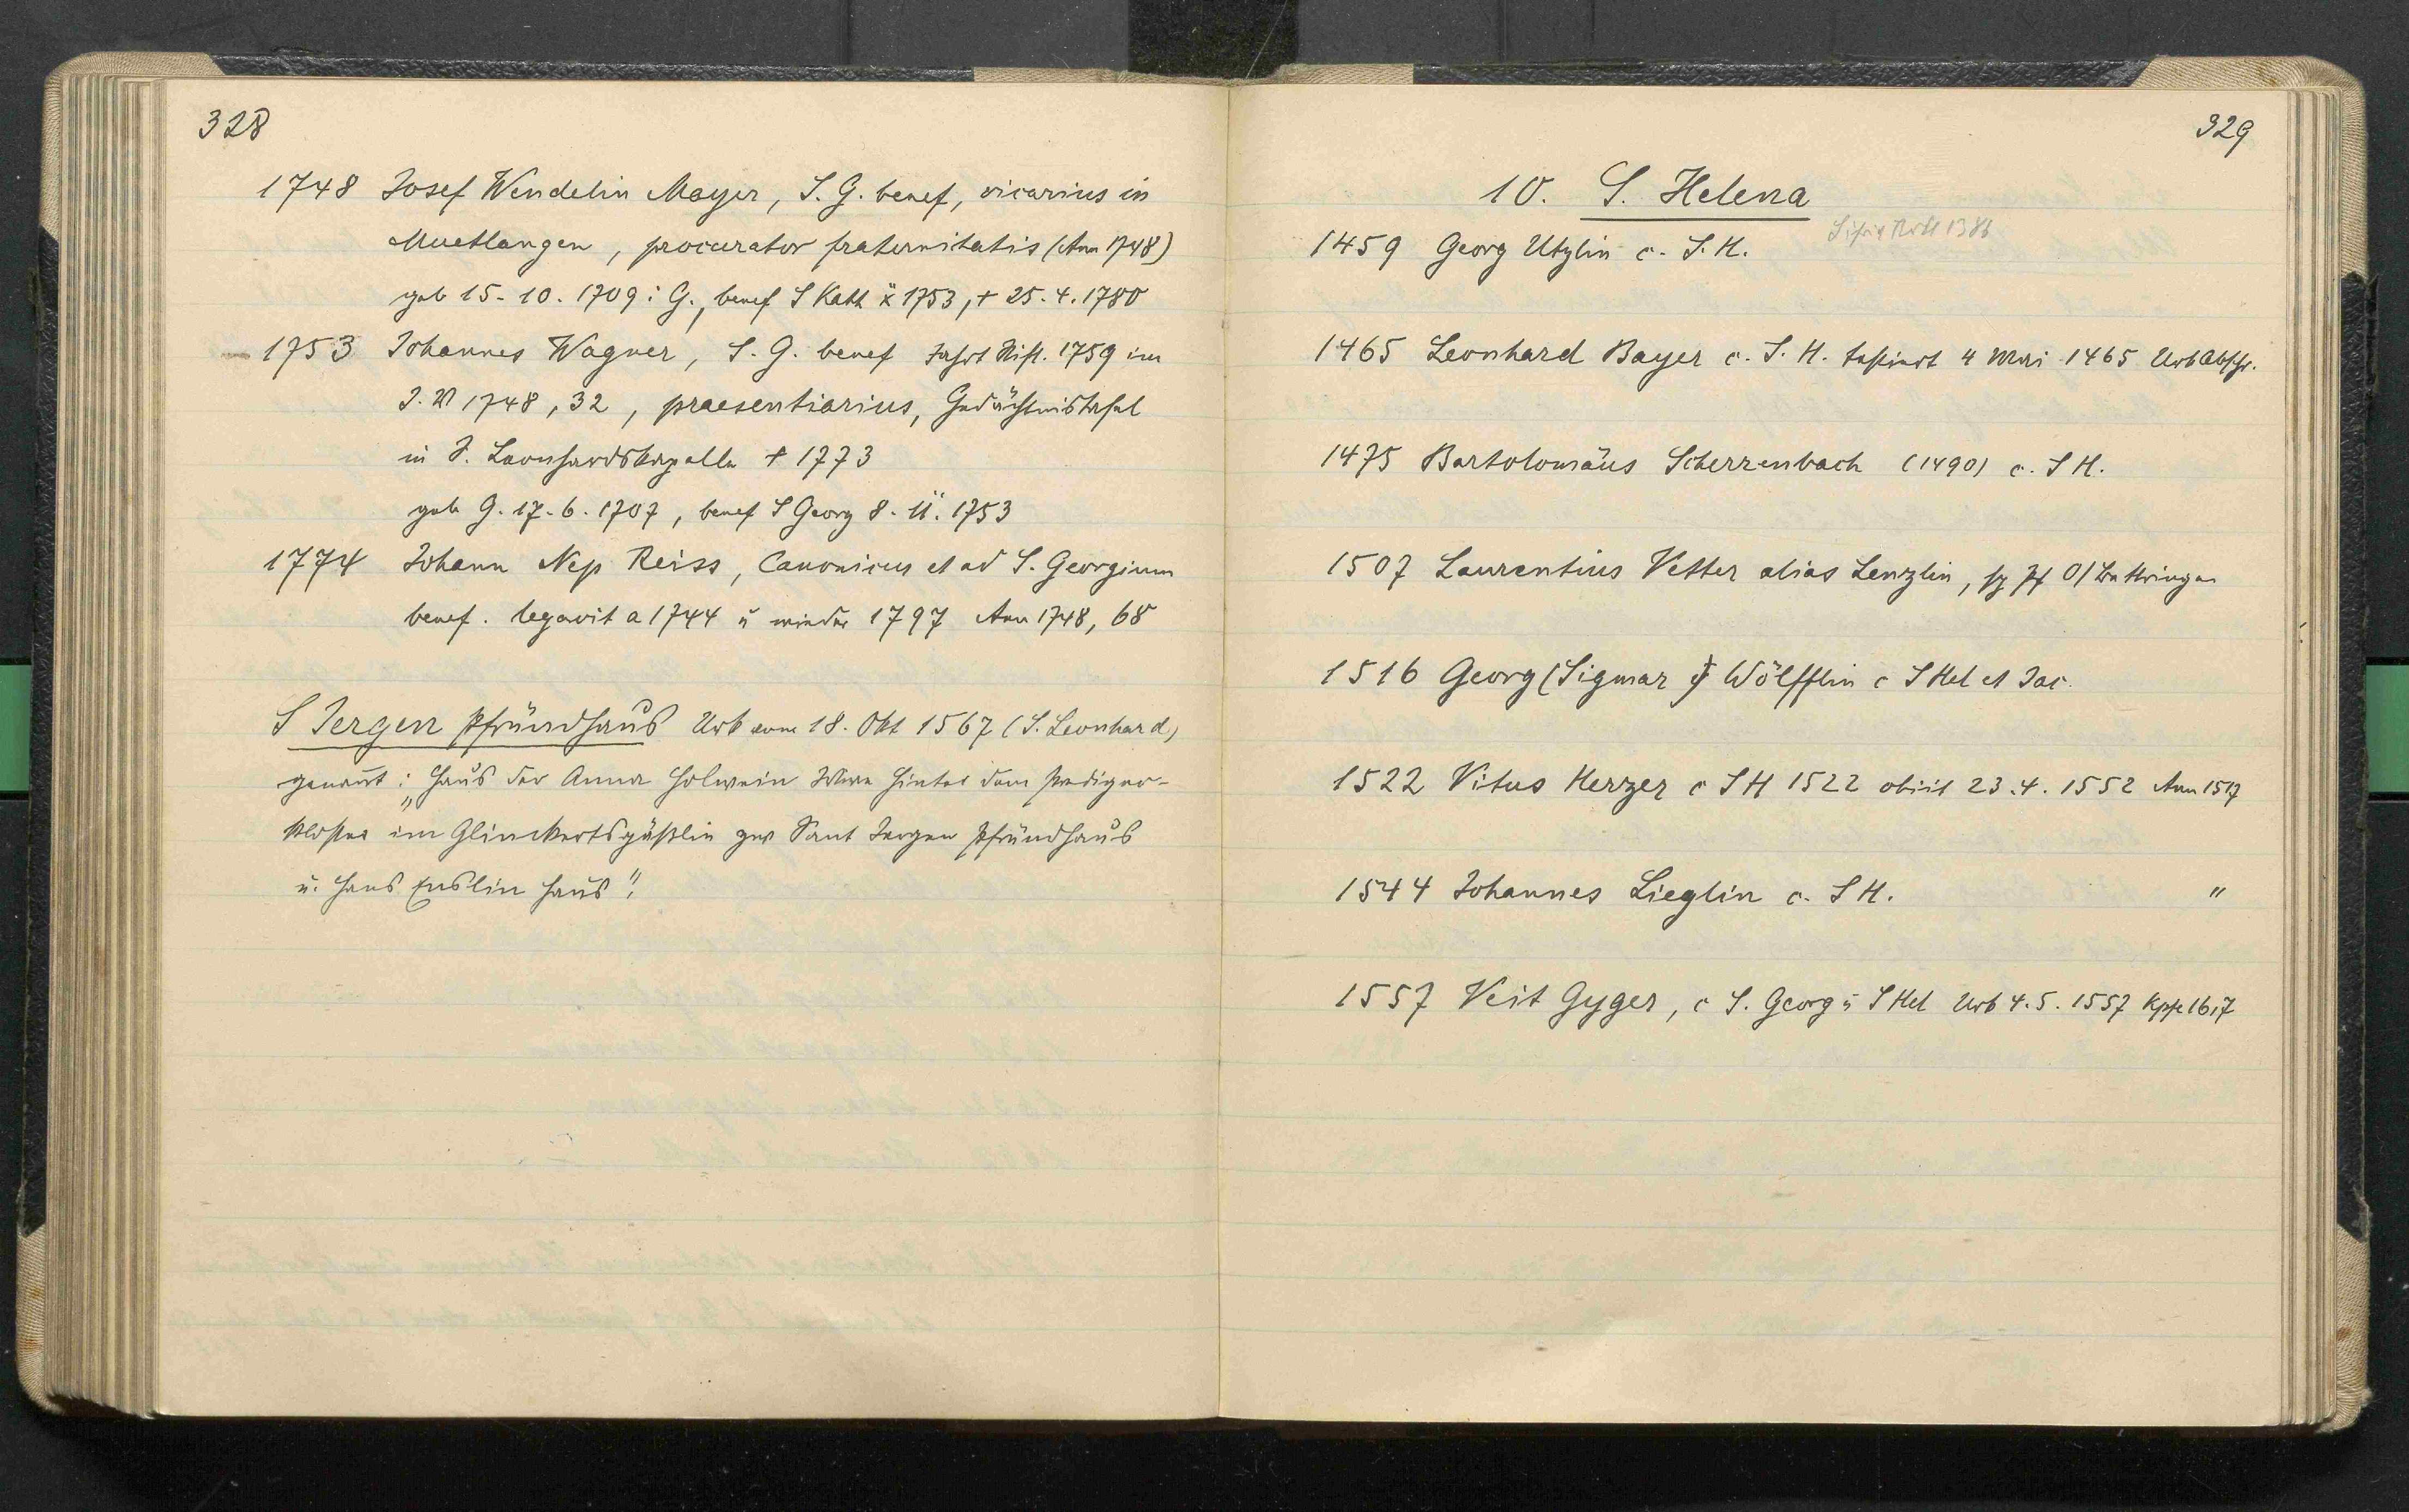 328
1748 Josef Wendelin Mayer, S. G. benef, vicarius in
Muetlangen, procurator fraternitatis (Ann 1748)
geb 15-10. 1709 i G., benef S Kath 1753, + 25. 4. 1780
1753 Johannes Wagner, S. G. benef 1759 im
1748, 32, praesentiarius, Gedächtnistafel
in S. Leonhardskapelle + 1773
geb G. 17-6. 1707, benef S Georg 8. 11. 1753
1774 Johann Nep Reiss, Canonicus et ad S. Georgium
benef. legavit a 1744 u wieder 1797 Ann 1748, 68
S Jergen Pfründhaus Urk vom 18. Okt 1567 (S. Leonhard)
genannt: „Haus der Anna Holwein hinter dem Prediger-
kloster im Glinckertsgäßlin zw Sant Jergen Pfründhaus
u. Hans Enslin Haus".
329
10. S. Helena
1459 Georg Utzlin c. S. H.
1465 Leonhard Bayer c. S. H. testiert 4 Mai 1465 Urk Abschr.
1475 Bartolomäus Scherrenbach (1490) c. S H.
1507 Laurentius Vetter alias Lenzlin,
1516 Georg (Sigmar) Wölfflin c S Hel et Jac.
1522 Vitus Herzer c S H 1522 obiit 23. 4. 1552 Ann 1517
1544 Johannes Lieglin c. S H. "
1557 Veit Gyger, c S. Georg u S Hel Urk 4. 5. 1557